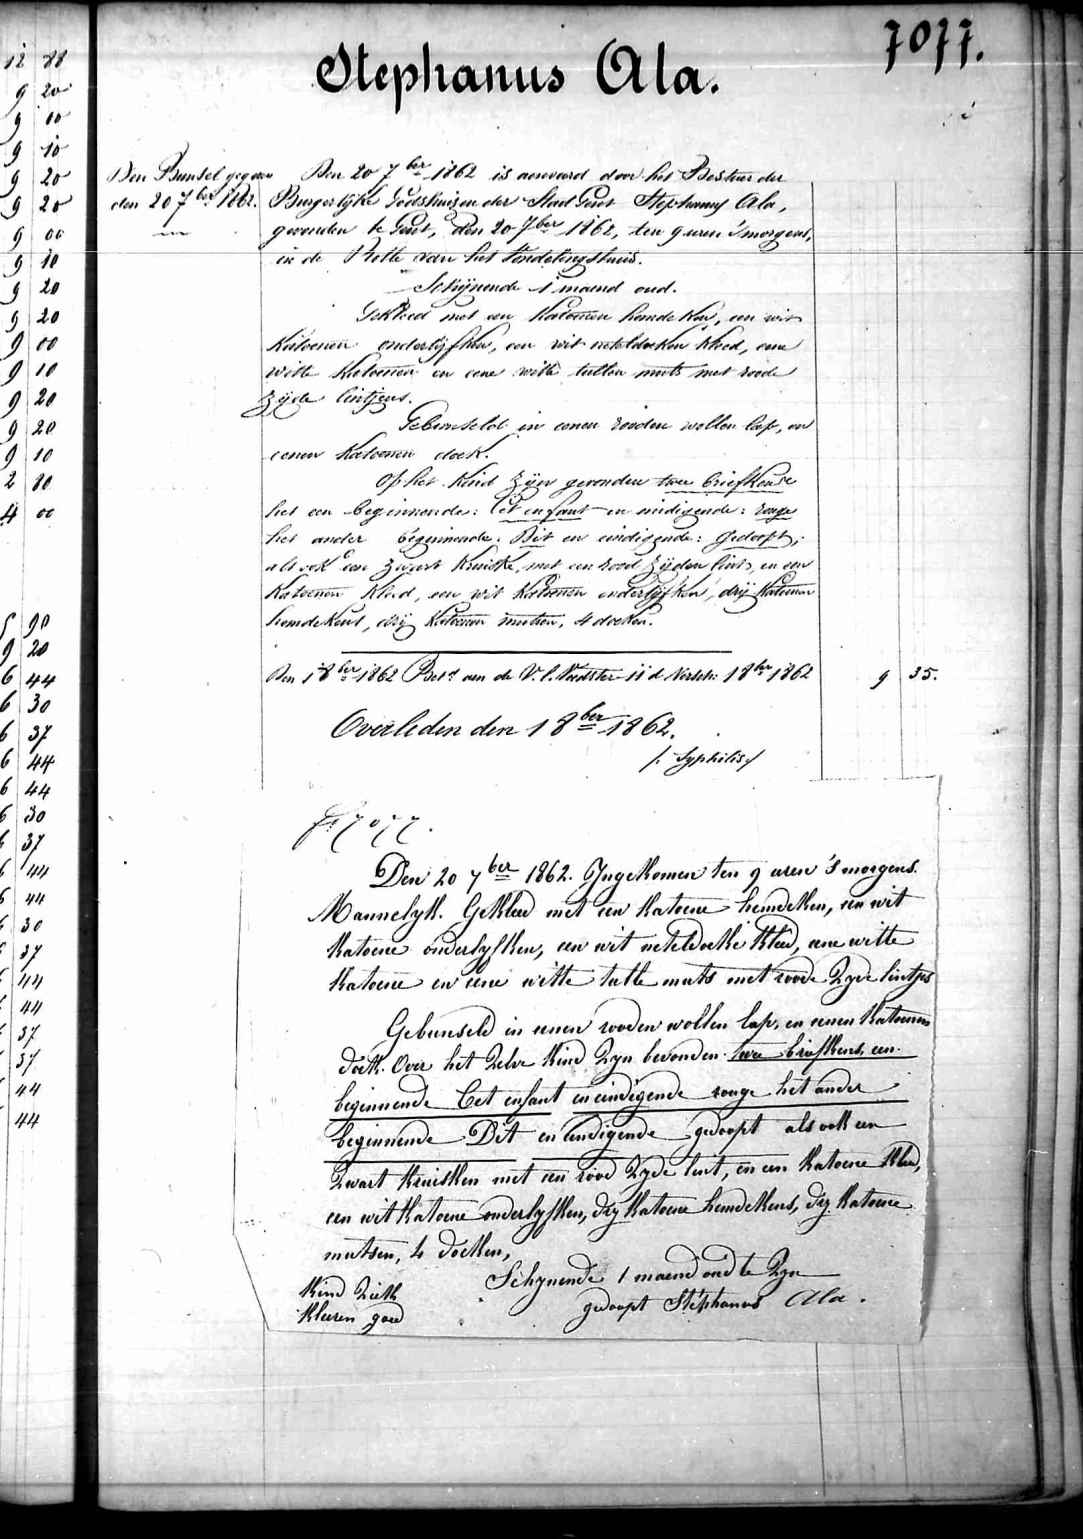 7077.
Stephanus Ala.
Den Bunsel gegeven
den 20 7ber 1862.
Den 20 7ber 1862 is aenveerd door het Bestuer der
Burgerlyke Godshuizen der Stad Gent Stephanus Ala,
gevonden te Gent, den 20 7ber 1862, ten 9 uren 's morgens,
in de Rolle van het Vondelingshuis.
Schijnende 1 maend oud.
Gekleed met een Katoenen hemdeken, een wit
Katoenen onderlijfken, een wit neteldoeken kleed, eene
witte Katoenen en eene witte tullen muts met roode
zijde lintjens.
Gebunseld in eenen rooden wollen lap, en
eenen Katoenen doek.
Op het Kind zijn gevonden twee briefkens
het een beginnende: Cet enfant en eindigende: rouge
het ander beginnende: Dit en eindigende: gedoopt,
als ook een zwart Kruiske, met een rood zijden lint, en een
Katoenen Kleed, een wit Katoenen onderlijfken, drij Katoenen
hemdekens, drij Katoenen mutsen, 4 doeken.
Den 1 8ber 1862 Bet. aen de V. l. Voedster 11 d. 1 8ber 1862 9 35.
Overleden den 1 8ber 1862.
/: Syphilis:/
No 7077.
Den 20 7ber 1862. Ingekomen ten 9 uren 's morgens.
Mannelyk. Gekleed met een Katoene hemdeken, een wit
Katoene onderlyfken, een wit neteldoeke kleed, eene witte
Katoene en eene witte tulle muts met roode Zyde lintjes
Gebunseld in eenen rooden wollen lap, en eenen Katoenen
doek. Over het Zelve Kind Zyn bevonden twee briefkens, een
beginnende Cet enfant en eindigende rouge het ander
beginnende Dit en eindigende gedoopt als ook een
Zwart Kruisken met een rood Zyde lint, en een Katoene Kleed,
een wit Katoene onderlyfken, dry Katoene hemdekens, dry Katoene
mutsen, 4 doeken,
Schynende 1 maend oud te Zyn
Kind Ziek
gedoopt Stéphanus Ala.
Kleeren goed
12 88
9 20
9 10
9 10
9 20
9 20
9 00
9 10
9 20
9 20
9 00
9 10
9 20
9 20
9 10
2 80
4 00
90
9 20
6 44
6 30
6 37
6 44
6 44
6 30
37
44
44
30
37
44
44
37
37
44
44